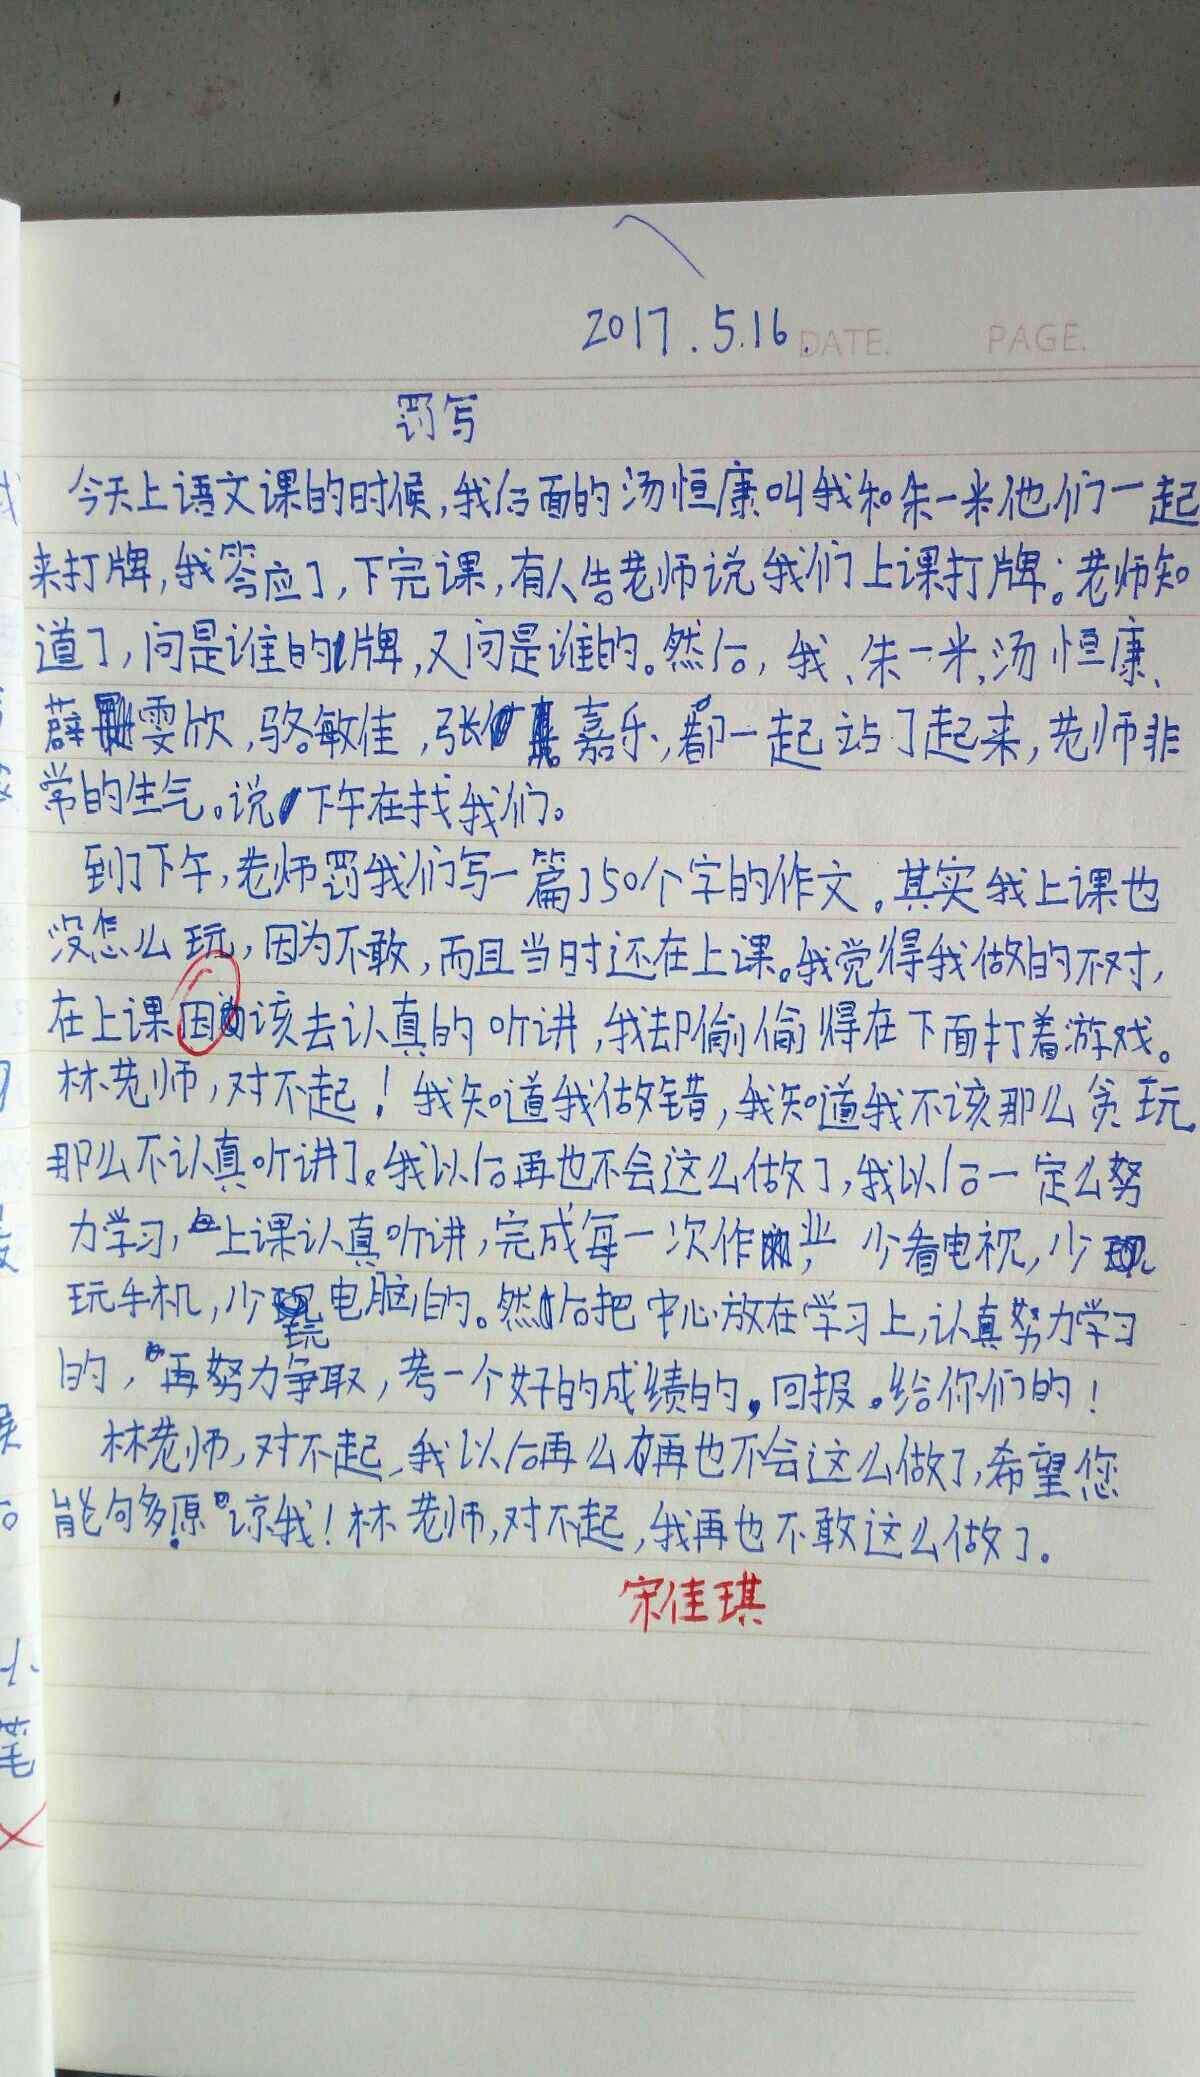 2017.5.16.
DATE. PAGE.
罚写
今天上语文课的时候,我后面的汤恒康叫我和朱一米他们一起
来打牌,我答应了,下完课,有人告老师说我们上课打牌。老师知
道了,问是谁的牌,又问是谁的。然后,我、朱一米,汤恒康、
薛雯欣,骆敏佳,张嘉乐,都一起站了起来,老师非
常的生气。说下午在找我们。
到了下午,老师罚我们写一篇750个字的作文。其实我上课也
没怎么玩,因为不敢,而且当时还在上课。我觉得我做的不对,
在上课因该去认真的听讲,我却偷偷得在下面打着游戏。
林老师,对不起!我知道我做错,我知道我不该那么贪玩
那么不认真听讲了。我以后再也不会这么做了,我以后一定么努
力学习,上课认真听讲,完成每一次作业,少看电视,少
玩手机,少玩电脑的。然后把中心放在学习上,认真努力学习
的,再努力争取,考一个好的成绩的。回报。给你们的!
林老师,对不起,我以后再么有再也不会这么做了,希望您
能句多原谅我!林老师,对不起,我再也不敢这么做了.
宋佳琪